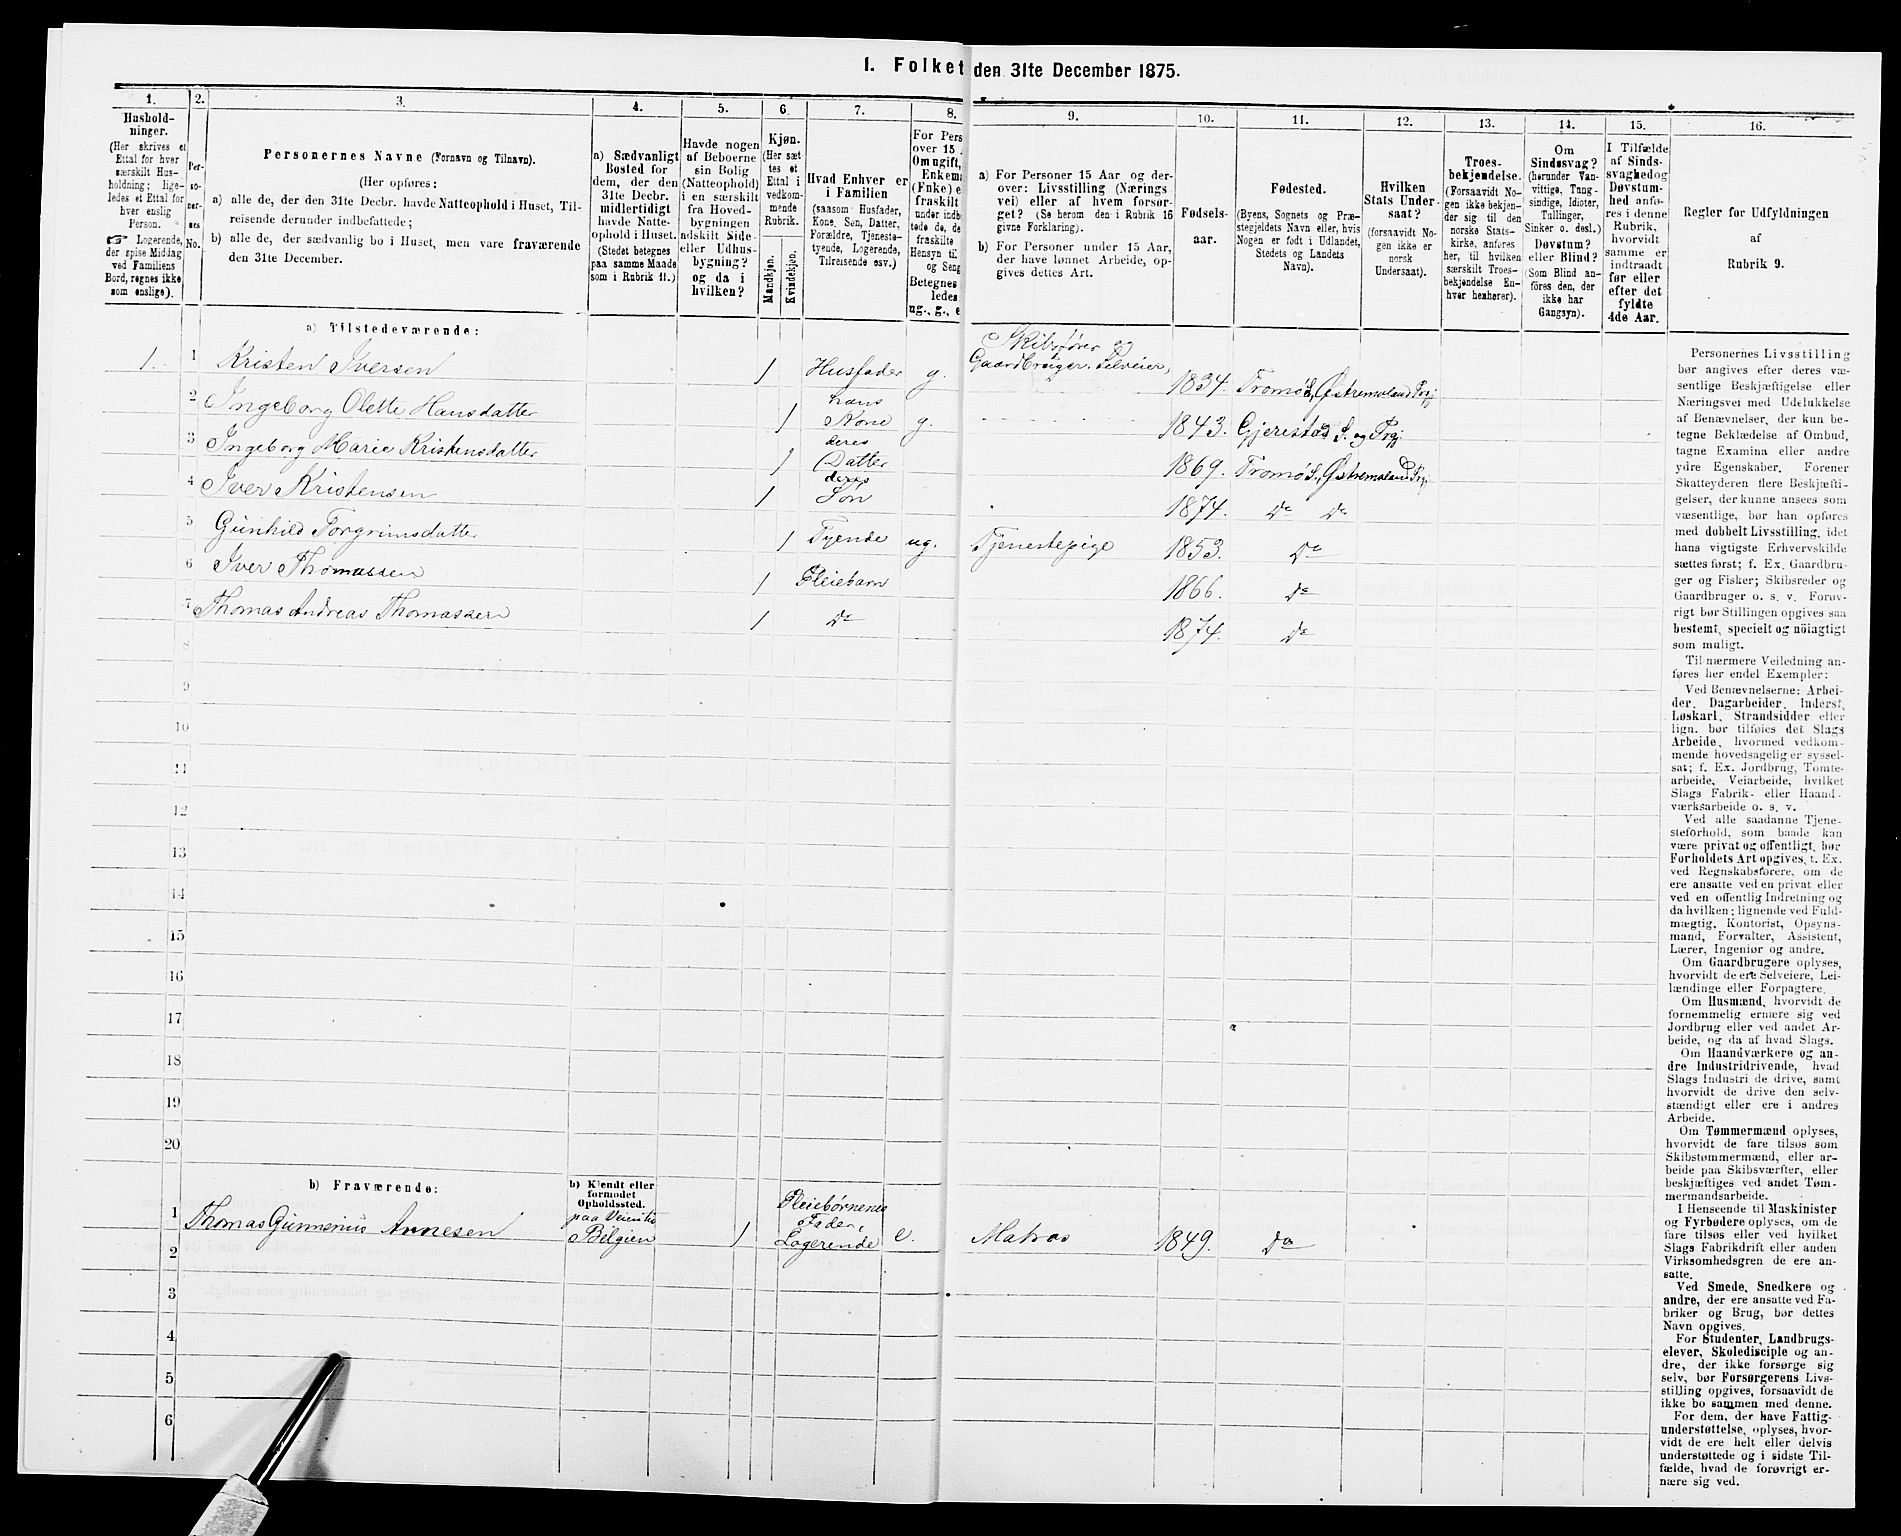 1. Folket den 31te December 1875.
1.
Hushold-
ninger.
(Her skrives et
Ettal for hver
særskilt Hus-
holdning; lige-
ledes et Ettal for
hver enslig
Person.
☞ Logerende,
der spise Middag
ved Familiens
Bord, regnes ikke
som enslige).
2.
Per-
so-
ner-
nes
No.
3.
Personernes Navne (Fornavn og Tilnavn).
(Her opføres:
a) alle de, der den 31te Decbr. havde Natteophold i Huset, Til-
reisende derunder indbefattede;
b) alle de, der sædvanlig bo i Huset, men vare fraværende
den 31te December.
4.
a) Sædvanligt
Bosted for
dem, der den
31te Decbr.
midlertidigt
havde Natte-
ophold i Huset.
(Stedet betegnes
paa samme Maade
som i Rubrik 11.)
5.
Havde nogen
af Beboerne
sin Bolig
(Natteophold)
i en særskilt
fra Hoved-
bygningen
adskilt Side-
eller Udhus-
bygning?
og da i
hvilken?
6.
Kjøn.
(Her sæt-
tes et
Ettal i
vedkom-
mende
Rubrik.
Mandkjøn.
Kvindekjøn.
7.
Hvad Enhver er
i Familien
(saasom Husfader,
Kone, Søn, Datter,
Forældre, Tjeneste-
tyende, Logerende,
Tilreisende osv.)
8.
For Pers
over 15
Om ugift,
Enkema
(Fnke) e
fraskilt
under indb
tede de, de
fraskilte
Hensyn til
og Seng
Betegnes
ledes
ug., g., e
9.
a) For Personer 15 Aar og der-
over: Livsstilling (Nærings
vei) eller af hvem forsør-
get? (Se herom den i Rubrik 16
givne Forklaring).
b) For Personer under 15 Aar,
der have lønnet Arbeide, op-
gives dettes Art.
10.
Fødsels-
aar.
11.
Fødested.
(Byens, Sognets og Præ-
stegjeldets Navn eller, hvis
Nogen er født i Udlandet,
Stedets og Landets
Navn).
12.
Hvilken
Stats Under-
saat?
(forsaavidt No-
gen ikke er
norsk
Undersaat).
13.
Troes-
bekjendelse.
(Forsaavidt No-
gen ikke bekjen-
der sig til den
norske Stats-
kirke, anføres
her, til hvilken
særskilt Troes-
bekjendelse En-
hver henhører).
14.
Om
Sindssvag?
(herunder Van-
vittige, Tung-
sindige, Idioter,
Tullinger,
Sinker o. desl.)
Døvstum?
eller Blind?
(Som Blind an-
føres den, der
ikke har
Gangsyn).
15.
I Tilfælde
af Sinds-
svaghed og
Døvstum-
hed anfø-
res i denne
Rubrik,
hvorvidt
samme er
indtraadt
før eller
efter det
fyldte
4de Aar.
16.
Regler for Udfyldningen
af
Rubrik 9.
a) Tilstedeværende:
1. 1 Kristen Iversen 1 Husfader g. Skibsfører og
Gaardbruger, Selveier, 1834. Tromø S., Østremoland Prgj
2 Ingeborg Olette Hansdatter 1 hans
Kone g. 1843. Gjerestad S. og Prgj
3 Ingeborg Marie Kristensdatter 1 deres
Datter 1869. Tromø S., Østremoland Prgj
4 Iver Kristensen 1 deres
Søn 1874. Do Do
5 Gunhild Torgrimsdatter 1 Tyende ug. Tjenestepige 1853. Do
6 Iver Thomassen 1 Pleiebarn 1866. Do
7 Thomas Andreas Thomassen 1 Do 1874. Do
8
9
10
11
12
13
14
15
16
17
18
19
20
b) Fraværende:
b) Kjendt eller
formodet
Opholdssted.
1 Thomas Gunnerius Annesen paa Veien til
Belgien 1 Pleiebørnenes
Fader,
Logerende e. Matros 1849. Do
2
3
4
5
6
Personernes Livsstilling
bør angives efter deres væ-
sentlige Beskjæftigelse eller
Næringsvei med Udelukkelse
af Benævnelser, der kun be-
tegne Beklædelse af Ombud,
tagne Examina eller andre
ydre Egenskaber. Forener
Skatteyderen flere Beskjæfti-
gelser, der kunne ansees som
væsentlige, bør han opføres
med dobbelt Livsstilling, idet
hans vigtigste Erhvervskilde
sættes først; f. Ex. Gaardbru-
ger og Fisker; Skibsreder og
Gaardbruger o. s. v. Forøv-
rigt bør Stillingen opgives saa
bestemt, specielt og nøiagtigt
som muligt.
Til nærmere Veiledning an-
føres her endel Exempler:
Ved Benævnelserne: Arbei-
der, Dagarbeider, Inderst,
Løskarl, Strandsidder eller
lign. bør tilføies det Slags
Arbeide, hvormed vedkom-
mende hovedsagelig er syssel-
sat; f. Ex. Jordbrug, Tømte-
arbeide, Veiarbeide, hvilket
Slags Fabrik- eller Haand-
værksarbeide o. s. v.
Ved alle saadanne Tjene-
steforhold, som baade kan
være privat og offentligt, bør
Forholdets Art opgives, t. Ex.
ved Regnskabsførere, om de
ere ansatte ved en privat eller
ved en offentlig Indretning og
da hvilken; lignende ved Fuld-
mægtig, Kontorist, Opsyns-
mand, Forvalter, Assistent,
Lærer, Ingeniør og andre.
Om Gaardbrugere oplyses,
hvorvidt de ere Selveiere, Lei-
lændinge eller Forpagtere.
Om Husmænd, hvorvidt de
fornemmelig ernære sig ved
Jordbrug eller ved andet Ar-
beide, og da af hvad Slags.
Om Haandværkere og an-
dre Industridrivende, hvad
Slags Industri de drive, samt
hvorvidt de drive den selv-
stændigt eller ere i andres
Arbeide.
Om Tømmermænd oplyses,
hvorvidt de fare tilsøs som
Skibstømmermænd, eller ar-
beide paa Skibsværfter, eller
beskjæftiges ved andet Tøm-
mermandsarbeide.
I Henseende til Maskinister
og Fyrbødere oplyses, om de
fare tilsøs eller ved hvilket
Slags Fabrikdrift eller anden
Virksomhedsgren de ere an-
satte.
Ved Smede, Snedkere og
andre, der ere ansatte ved Fa-
briker og Brug, bør dettes
Navn opgives.
For Studenter, Landbrugs-
elever, Skoledisciple og an-
dre, der ikke forsørge sig
selv, bør Forsørgerens Livs-
stilling opgives, forsaavidt de
ikke bo sammen med denne.
For dem, der have Fattig-
understøttelse, oplyses, hvor-
vidt de ere helt eller delvis
understøttede og i sidste Til-
fælde, hvad de forøvrigt er-
nære sig ved.